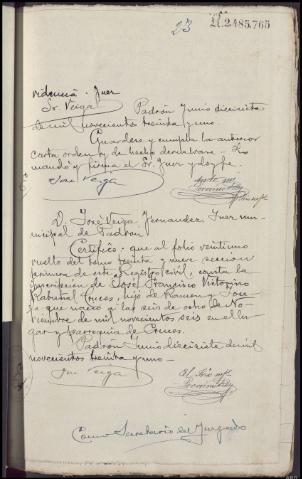 23
A.2485.765
Providencia. Juez
Sr. Veiga
Padrón Junio diecisiete
de mil novecientos treinta y uno.
Guardese y cumplase la anterior
carta orden y hecho devuelvase. Lo
mandó y firma el Sr. Juez y doy fe.
José Veiga
Ante mi
D. José Veiga Fernandez, Juez mu-
nicipal de Padrón
Certifico: que al folio veintiuno
vuelto del tomo treinta y nueve seccion
primera de este Registro civil, consta la
inscripcion de José Francisco Victorino
Rabuñal hijo de Ramon y Jose-
fa que nacio a las seis de ocho de No-
viembre de mil novecientos seis en el lu-
gar y parroquia de Cruces.
Padrón Junio diecisiete de mil
novecientos treinta y uno
José Veiga
El Srio
Como Secretario del Juzgado